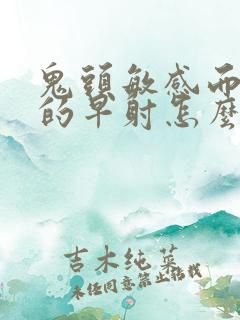 鬼頭敏感而
的早射怎麼
吉木纯菜
未经同意禁止转载